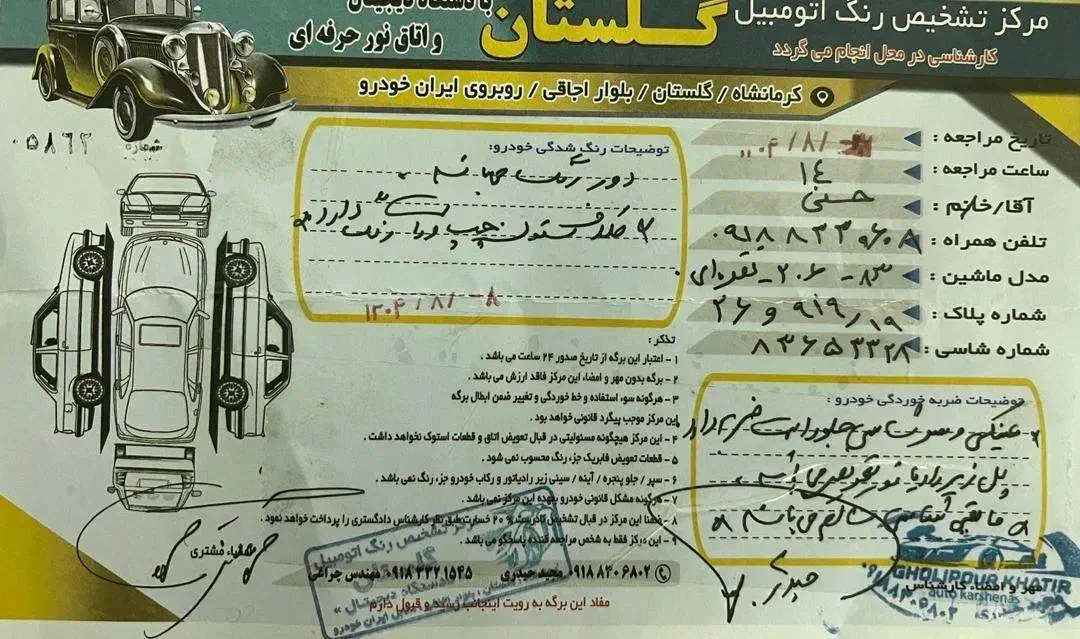 مرکز تشخیص رنگ اتومبیل گلستان
با دستگاه دیجیتال
و اتاق نور حرفه ای
کارشناسی در محل انجام می گردد
کرمانشاه / گلستان / بلوار اجاقی / روبروی ایران خودرو
شماره ۰۵۸۶۲
تاریخ مراجعه :
ساعت مراجعه : ۱٤
آقا/خانم : حسنی
تلفن همراه :
مدل ماشین : ۸۳ - ۲۰۶ - نقره‌ای
شماره پلاک : ۱۹ / ۹۱۹ و ۲۶
شماره شاسی : ۸۳۶۵۳۳۲۸
توضیحات رنگ شدگی خودرو:
دور رنگ میباشد
ستون چپ
۱۴۰۴/۸/۰۸
توضیحات ضربه خوردگی خودرو :
سینی
جلو راست ضربه دارد
مابقی شاسی سالم می باشد
تذکر :
۱ - اعتبار این برگه از تاریخ صدور ۲۴ ساعت می باشد .
۲ - برگه بدون مهر و امضاء این مرکز فاقد ارزش می باشد .
۳ - هرگونه سوء استفاده و خط خوردگی و تغییر ضمن ابطال برگه
این مرکز موجب پیگرد قانونی خواهد بود .
۴ - این مرکز هیچگونه مسئولیتی در قبال تعویض اتاق و قطعات استوک نخواهد داشت .
۵ - قطعات تعویض فابریک جزء رنگ محسوب نمی شود .
۶ - سپر / جلو پنجره / آینه / سینی زیر رادیاتور و رکاب خودرو جزء رنگ نمی باشد .
۷ - هرگونه مشکل قانونی خودرو بعهده این مرکز نمی باشد .
۸ - ضمنا این مرکز در قبال تشخیص نادرست ۲۰٪ خسارت طبق نظر کارشناس دادگستری را پرداخت خواهد نمود .
۹ - این مرکز فقط به شخص مراجعه کننده پاسخگو می باشد .
۰۹۱۸ ۸۳۰ ۶۸۰۲ مجید حیدری ۰۹۱۸ ۳۳۲ ۱۵۴۵ مهندس چراغی
مفاد این برگه به رویت اینجانب رسید و قبول دارم
امضاء مشتری
مهر و امضاء کارشناس
مرکز تشخیص رنگ اتومبیل
گلستان
GHOLIPOUR KHATIR
auto karshenas